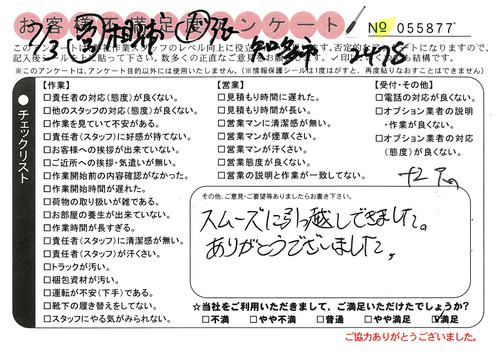 お客様不満足度アンケート
No 055877
7/3
知多市
2478
このアンケートは
※このアンケートは、アンケート目的以外には使用いたしません。(※情報保護シールは1度はがすと、再度貼りなおすことはできません)
●チェックリスト
【作業】
□責任者の対応(態度)が良くない。
□他のスタッフの対応(態度)が良くない。
□作業を見ていて不安がある。
□責任者(スタッフ)に好感が持てない。
□お客様への挨拶が出来ていない。
□ご近所への挨拶・気遣いが無い。
□作業開始前の内容確認がなかった。
□作業開始時間が遅れた。
□荷物の取り扱いが雑である。
□お部屋の養生が出来ていない。
□作業時間が長すぎる。
□責任者(スタッフ)に清潔感が無い。
□責任者(スタッフ)が汗くさい。
□トラックが汚い。
□梱包資材が汚い。
□運転が不安(下手)である。
□靴下の履き替えをしてない。
□スタッフにやる気がみられない。
【営業】
□見積もり時間に遅れた。
□見積もり時間が長い。
□営業マンに清潔感が無い。
□営業マンが煙草くさい。
□営業マンが汗くさい。
□営業態度が良くない。
□営業の説明と作業が一致してない。
【受付・その他】
□電話の対応が良くない。
□オプション業者の説明
・作業が良くない。
□オプション業者の対応
(態度)が良くない。
その他、ご意見・ご要望等ありましたらお書き下さい。
スムーズに引っ越しできました。
ありがとうございました。
☆当社をご利用いただきまして、ご満足いただけたでしょうか?
□不満 □やや不満 □普通 □やや満足 ☑満足
ご協力ありがとうございました。